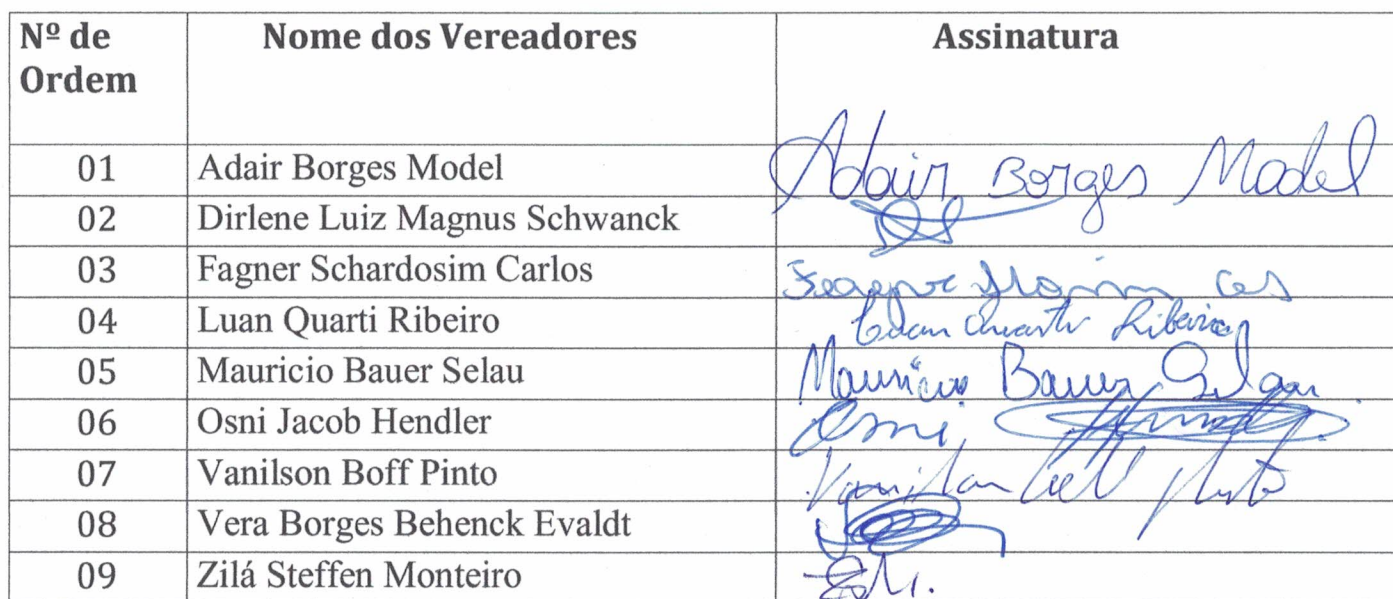 Nº de Ordem Nome dos Vereadores Assinatura
01 Adair Borges Model Adair Borges Model
02 Dirlene Luiz Magnus Schwanck
03 Fagner Schardosim Carlos
04 Luan Quarti Ribeiro Luan Quarti Ribeiro
05 Mauricio Bauer Selau Mauricio Bauer Selau
06 Osni Jacob Hendler Osni
07 Vanilson Boff Pinto Vanilson Boff Pinto
08 Vera Borges Behenck Evaldt
09 Zilá Steffen Monteiro